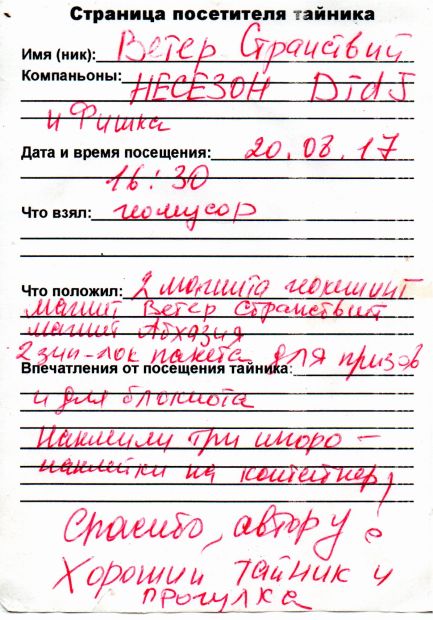 Страница посетителя тайника
Имя (ник): Ветер Странствий
Компаньоны: НЕСЕЗОН DIDJ
и Фишка
Дата и время посещения: 20.08.17
16:30
Что взял: геомусор
Что положил: 2 магнита геокешинг
магнит Ветер Странствий
магнит Абхазия
2 зип-лок пакета для призов
Впечатления от посещения тайника:
и для блокнота
Наклеили три инфо-
наклейки на контейнер,
Спасибо, автору!
Хороший тайник и
прогулка